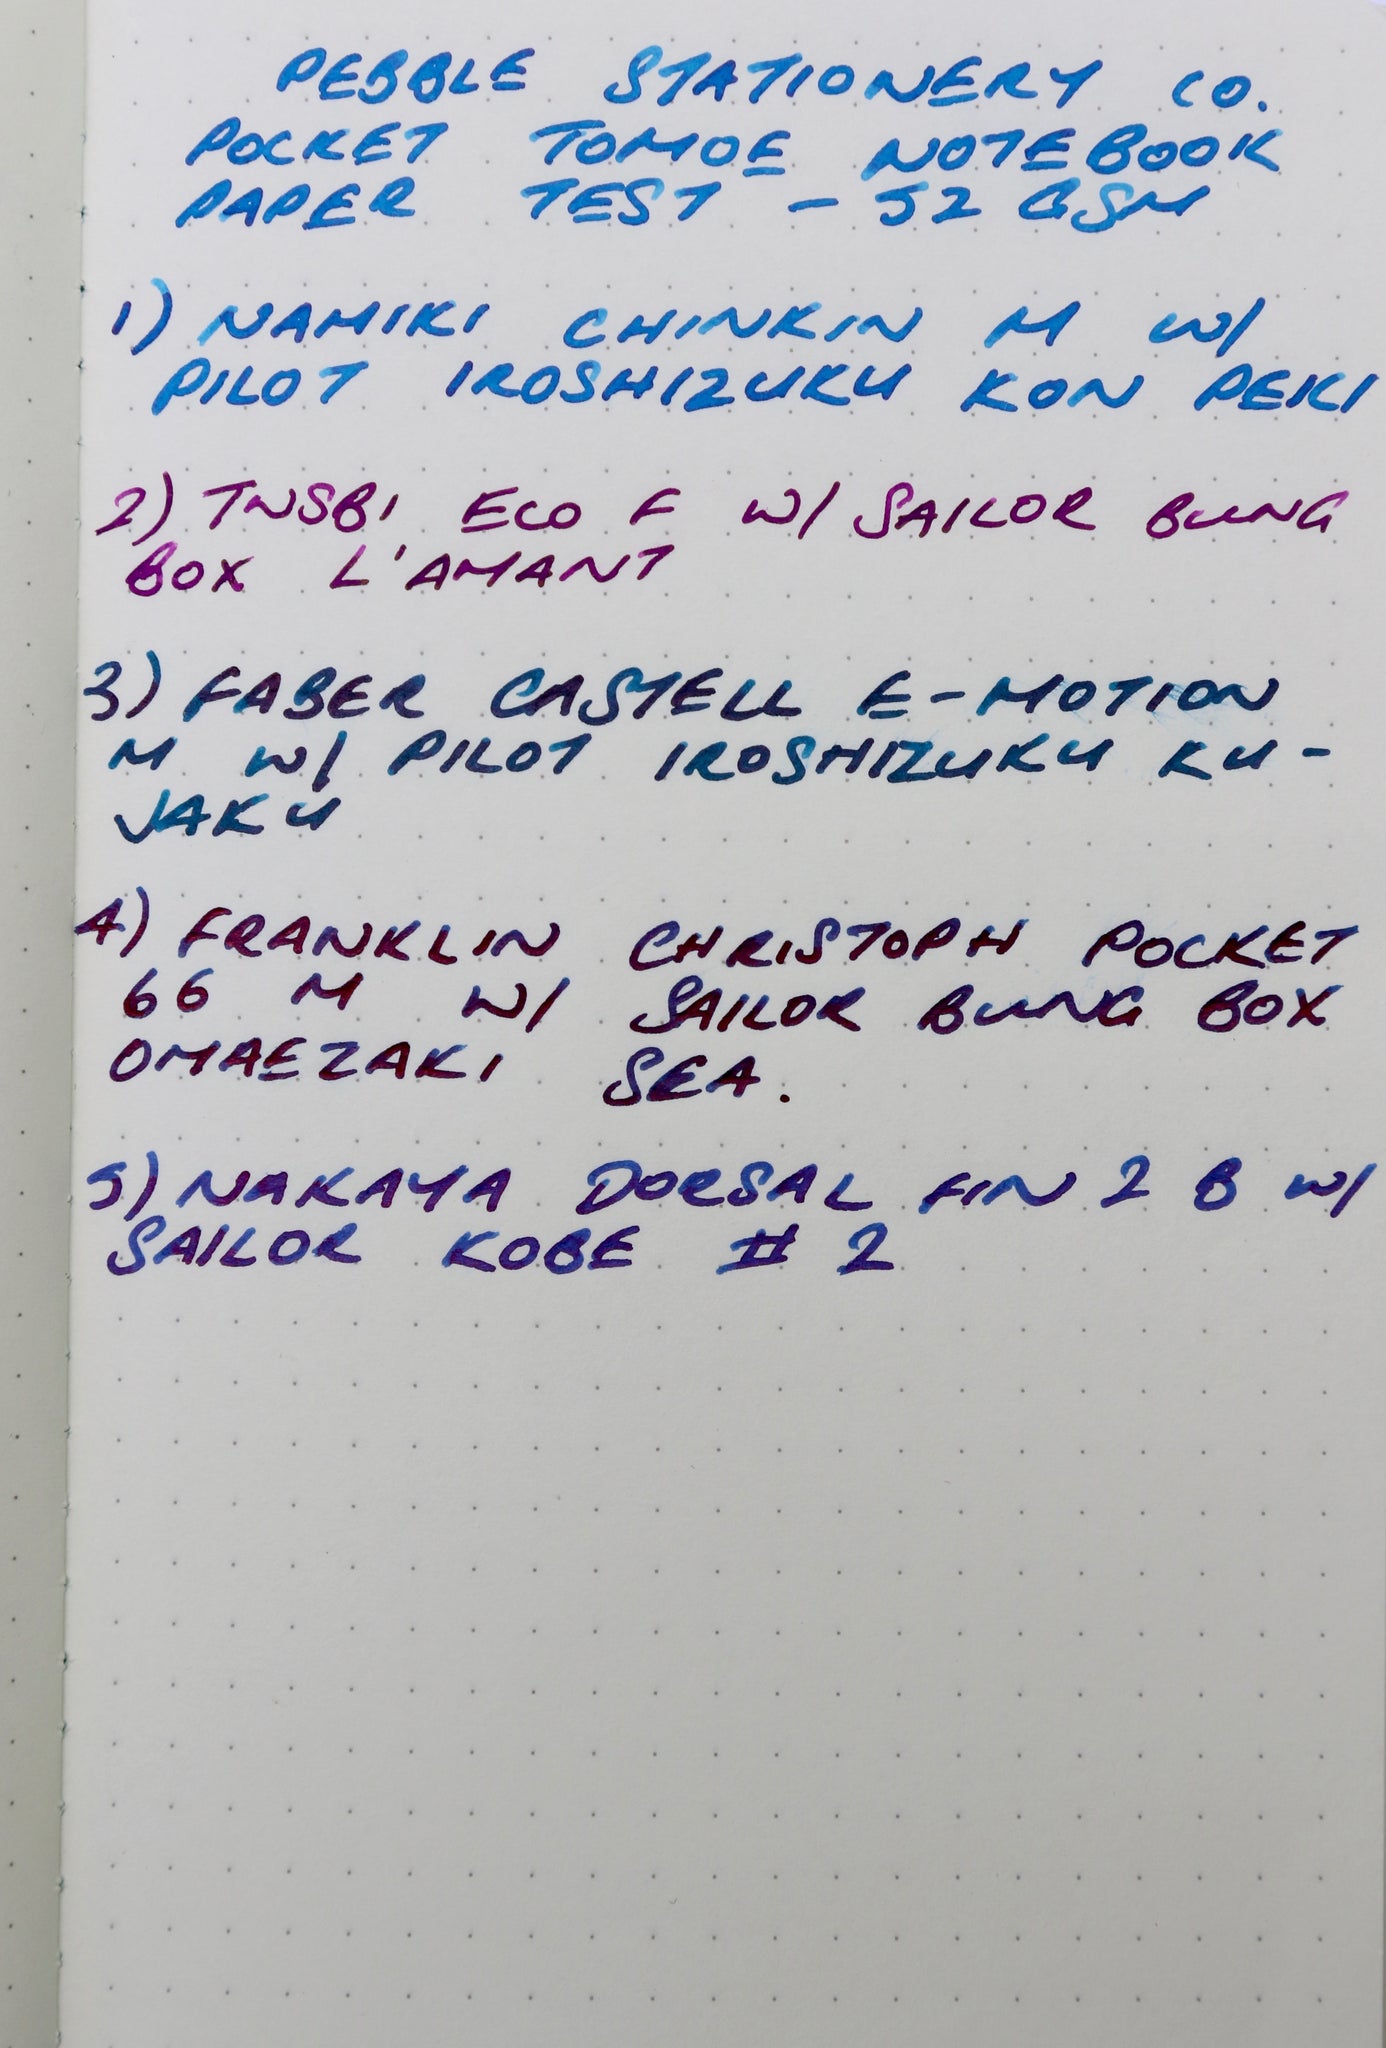 PEBBLE STATIONERY CO.
POCKET TOMOE NOTEBOOK
PAPER TEST - 52 GSM
1) NAMIKI CHINKIN M W/
PILOT IROSHIZUKU KON PEKI
2) TWSBI ECO F W/ SAILOR BUNG
BOX L'AMANT
3) FABER CASTELL E-MOTION
M W/ PILOT IROSHIZUKU KU-
JAKU
4) FRANKLIN CHRISTOPH POCKET
66 M W/ SAILOR BUNG BOX
OMAEZAKI SEA.
5) NAKAYA DORSAL FIN 2 B W/
SAILOR KOBE # 2